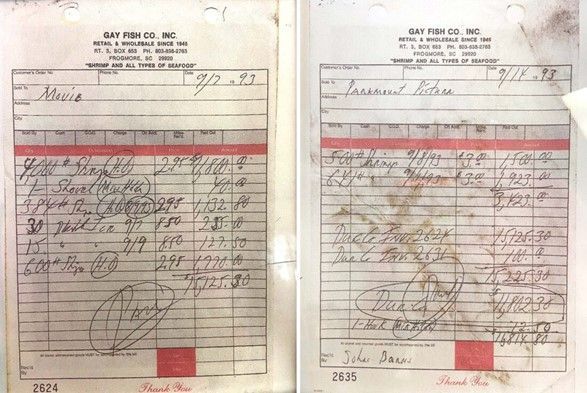 GAY FISH CO., INC.
RETAIL & WHOLESALE SINCE 1948
RT. 3, BOX 653 PH. 803-838-2763
FROGMORE, SC 29920
"SHRIMP AND ALL TYPES OF SEAFOOD"
Customer's Order No. Phone No. Date 9/7 1993
Sold To Movie
Address
City
Sold By Cash C.O.D. Charge On Acct. Mdse Ret'd Paid Out
4000 # Shrimp (H.O) 2.95 11,800.00
1- Shovel 40.00
384 # 2.95 1132.80
30 Ice 9/7 8.50 255.00
15 " " 9/9 8.50 127.50
600 # (H.O) 2.95 1770.00
15,125.30
Paid
All claims and returned goods MUST be accompanied by this bill
Rec'd By
2624 Thank You
GAY FISH CO., INC.
RETAIL & WHOLESALE SINCE 1948
RT. 3, BOX 653 PH. 803-838-2763
FROGMORE, SC 29920
"SHRIMP AND ALL TYPES OF SEAFOOD"
Customer's Order No. Phone No. Date 9/14 1993
Sold To Paramount Picture
Address
City
Sold By Cash C.O.D. Charge On Acct. Mdse Ret'd Paid Out
500 # Shrimp 9/8/93 $3.00 1,500.00
641 # " 9/9/93 $3.00 1,923.00
3,423.00
Inv. 2624 15,125.30
Inv. 2631 100.00
15,225.30
Paid
11,802.30
12.50
11,814.80
All claims and returned goods MUST be accompanied by this bill
Rec'd By John
2635 Thank You